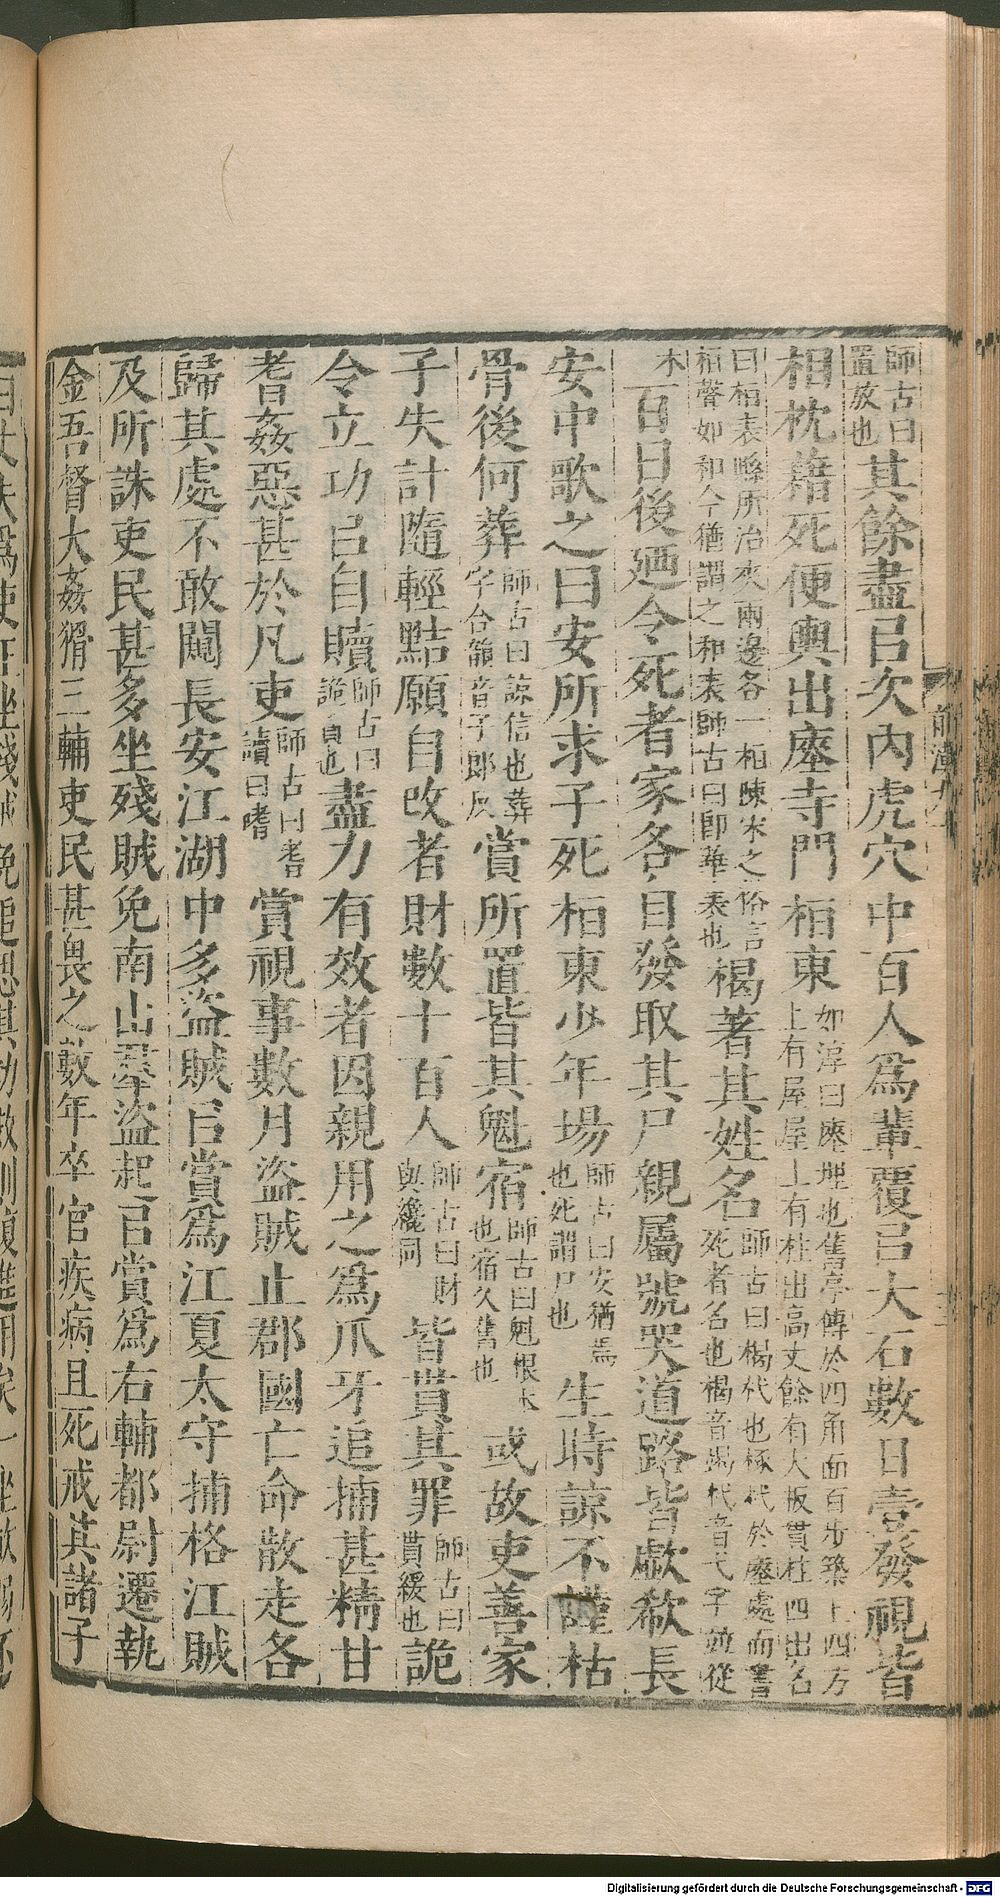 師古曰置放也其餘盡㠯次內虎穴中百人爲輩覆㠯大石數日壹發視皆
相枕藉死便輿出瘞寺門桓東如淳曰瘞埋也舊亭傳於四角面百步築土四方上有屋屋上有柱出高丈餘有大板貫柱四出名
曰桓表縣所治夾兩邊各一桓陳宋之俗言桓聲如和今猶謂之和表師古曰即華表也楬著其姓名師古曰楬杙也椓杙於瘞處而書死者名也楬音竭杙音弋字並從
木百日後廼令死者家各自發取其尸親屬號哭道路皆歔欷長
安中歌之曰安所求子死桓東少年場師古曰安猶焉也死謂尸也生時諒不謹枯
骨後何葬師古曰諒信也葬字合韻音子郎反賞所置皆其魁宿師古曰魁根本也宿久舊也或故吏善家
子失計隨輕黠願自改者財數十百人師古曰財與纔同皆貰其罪師古曰貰緩也詭
令立功㠯自贖師古曰詭責也盡力有效者因親用之爲爪牙追捕甚精甘
耆姦惡甚於凡吏師古曰耆讀曰嗜賞視事數月盜賊止郡國亡命散走各
歸其處不敢闚長安江湖中多盜賊㠯賞爲江夏太守捕格江賊
及所誅吏民甚多坐殘賊免南山羣盜起㠯賞爲右輔都尉遷執
金吾督大姦猾三輔吏民甚畏之數年卒官疾病且死戒其諸子
前漢九
Digitalisierung gefördert durch die Deutsche Forschungsgemeinschaft - DFG